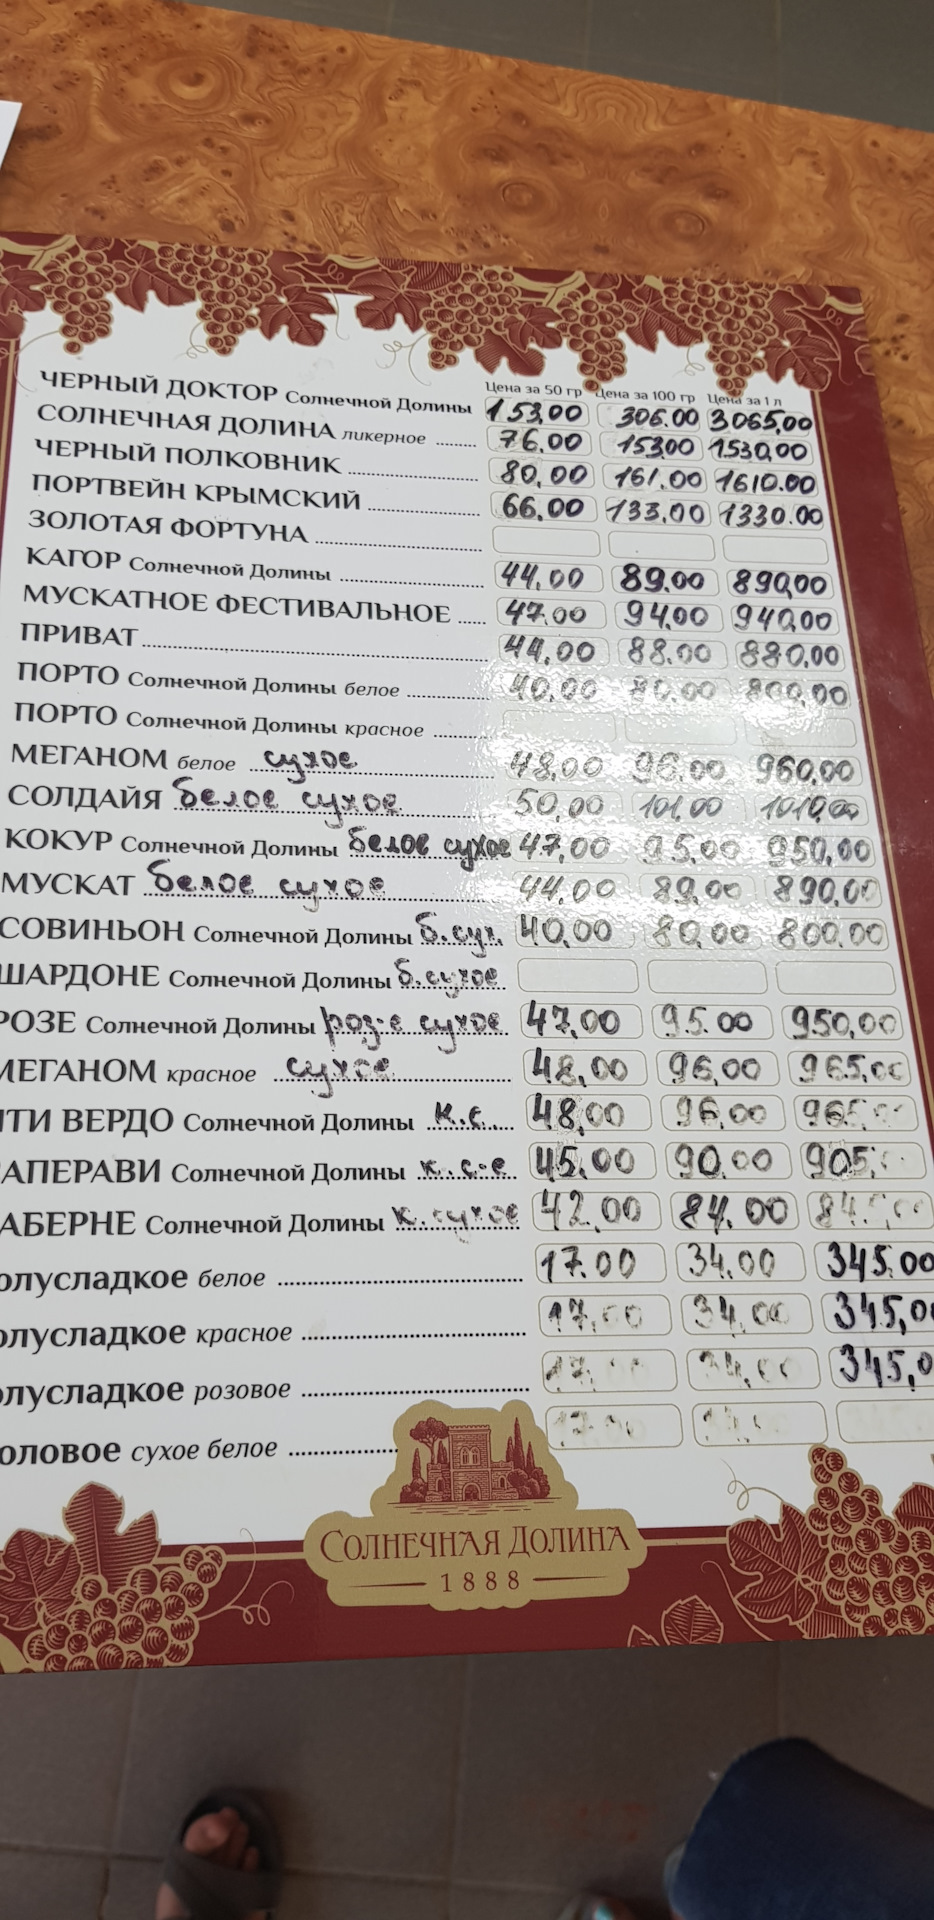 Цена за 50 гр Цена за 100 гр Цена за 1 л
ЧЕРНЫЙ ДОКТОР Солнечной Долины 153,00 306.00 3065,00
СОЛНЕЧНАЯ ДОЛИНА ликерное ........ 76.00 15300 1530,00
ЧЕРНЫЙ ПОЛКОВНИК ........ 80,00 161.00 1610.00
ПОРТВЕЙН КРЫМСКИЙ ........ 66,00 133,00 1330.00
ЗОЛОТАЯ ФОРТУНА ........
КАГОР Солнечной Долины ........ 44,00 89.00 890,00
МУСКАТНОЕ ФЕСТИВАЛЬНОЕ ..... 47.00 94.00 940,00
ПРИВАТ ........ 44,00 88.00 880,00
ПОРТО Солнечной Долины белое ........ 40,00 80,00 800,00
ПОРТО Солнечной Долины красное ........
МЕГАНОМ белое сухое 48,00 96,00 960,00
СОЛДАЙЯ белое сухое 50,00 101,00 1010,00
КОКУР Солнечной Долины белое сухое 47,00 95.00 950,00
МУСКАТ белое сухое 44,00 89,00 890,00
СОВИНЬОН Солнечной Долины б.сух. 40,00 80,00 800,00
ШАРДОНЕ Солнечной Долины б.сухое
РОЗЕ Солнечной Долины роз-е сухое 47,00 95.00 950,00
МЕГАНОМ красное сухое 48,00 96,00 965,00
ПТИ ВЕРДО Солнечной Долины к.с. 48,00 96,00 965
АПЕРАВИ Солнечной Долины к.с-е 45.00 90.00 905,
АБЕРНЕ Солнечной Долины к.сухое 42,00 84.00
олусладкое белое ........ 17.00 34.00 345,00
олусладкое красное ........ 17,00 34,00 345,0
олусладкое розовое ........ 345,0
оловое сухое белое ........
СОЛНЕЧНАЯ ДОЛИНА
1888